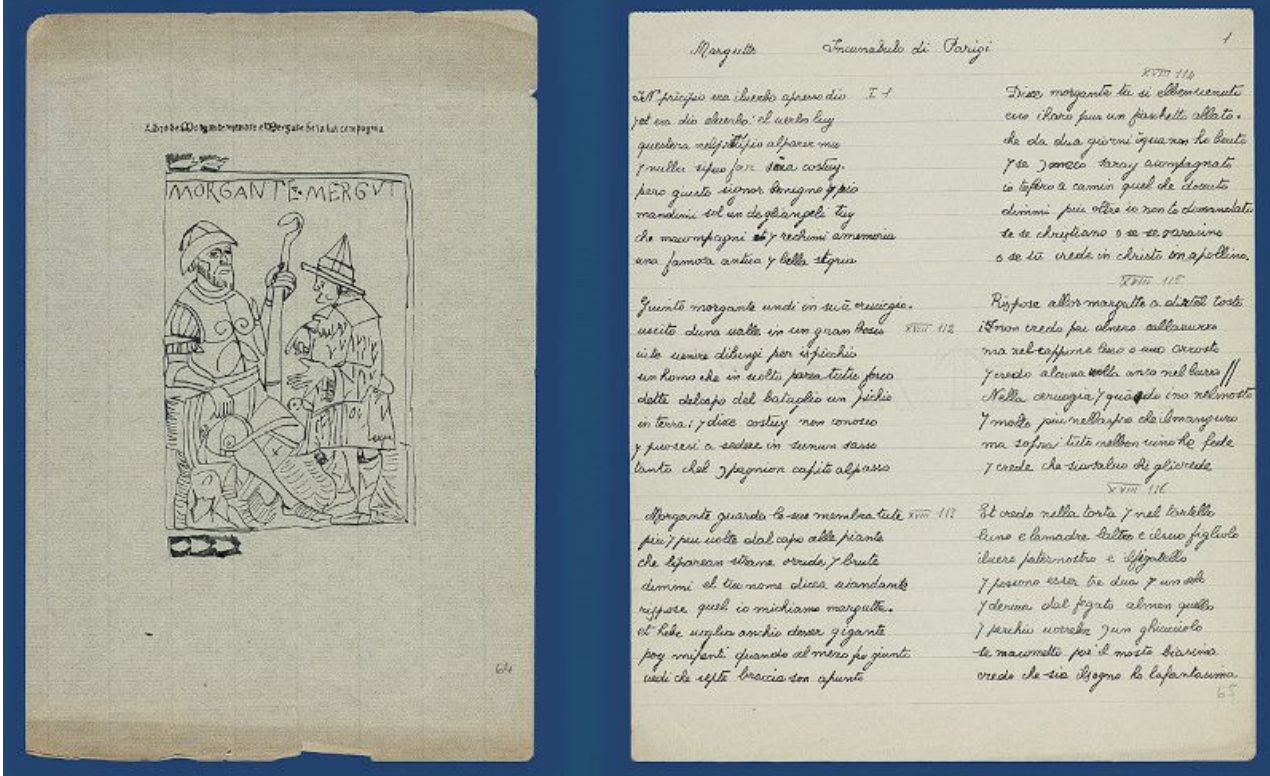 MORGANTE·MERGVT
64
Margutte Incunabulo di Parigi 1
IN pricipio era iluerbo apresso dio I 1
et era dio eluerbo: el uerbo luy
questera nel alparer mio
y nulla sipuo far sēza costuy.
pero giusto signor benigno y pio
mandimi sol un degliangeli tuy
che macompagni y rechimi amemoria
una famosa antica y bella storia
Giunto morgante undi in su ā cruciegio.
uscito duna ualle in un gran bosco XVIII 112
uide uenire dilungi per ispichio
un homo che in uolto parea tutto fosco
dette delcapo del bataglio un pichio
in terra: y dice costuy non conosco
y puosesi a sedere in sunun sasso
tanto chel capito alpasso
Morgante guarda le sue membra tute XVIII 113
piu y piu uolte dal capo alle piante
che liparean strane orride y brute
dimmi el tuo nome dicea uiandante
rispose quel io michiamo margutte.
et hebi uoglia anchio desser gigante
poy mipenti quando al mezo fu giunto
uedi che septe braccia son apunto
XVIII 114
Disse morgante tu si elbenuenuto
ecco iharo pur un fiaschetto allato.
che da dua giorni īqua non ho beuto
y se meco saray acompagnato
io tofaro a camin quel che douuto
dimmi piu oltre io non to dimandato
se se christiano o se se saracino
o se tu crede in christo o in apollino.
XVIII 115
Rispose allor margutte a dirtel tosto
non credo piu alnero callazurro
ma nel cappone lesso o uuo arrosto
y credo alcuna uolta anco nel burro //
Nella ceruogia y quādo ino nelmosto
y molto piu nellaspro che ilmangurro
ma sopra tuto nelbon uino ho fede
y crede che sia saluo chi gliicrede
XVIII 116
Et credo nella torta y nel tortello
luno e lamadre laltro e ilsuo figliolo
iluero paternostro e ilfigatello
y posono esser tre dua y un solo
y deriua dal fegato almen quello
y perchio uorrebe un ghiacciolo
se macometto poi il mosto biasima
credo che sia ilsogno ho lafantasima
65